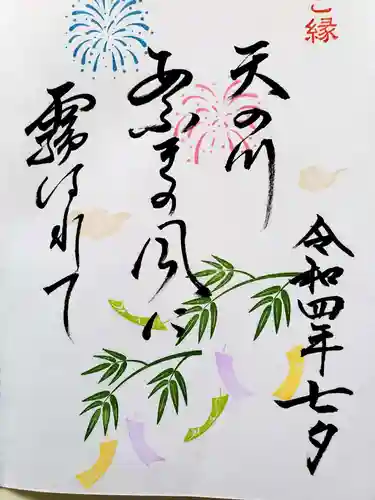 ご縁
令和四年七夕
天の川
あふぎの風に
霧はれて